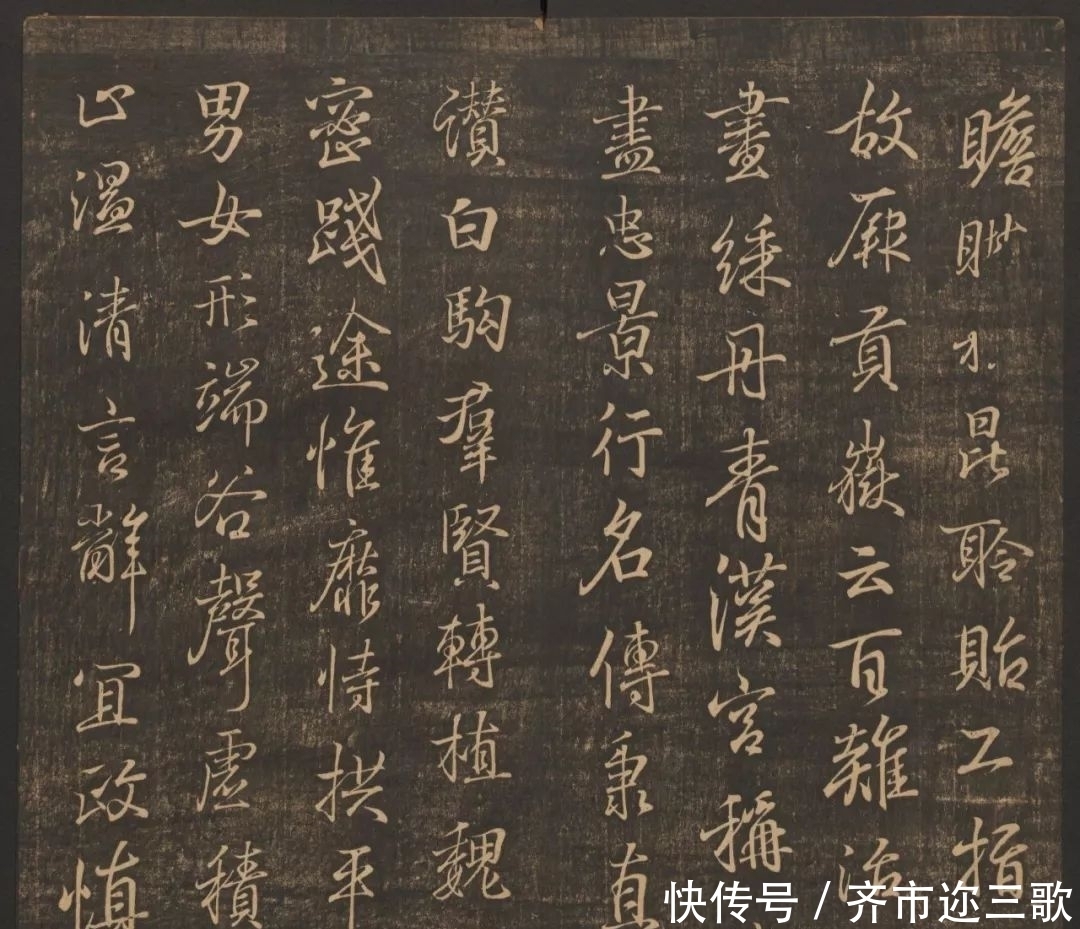 瞻昆聆貽工指
故厥貢嶽云百治
畫綵丹青漢宮稱
盡忠景行名傳秉直
讚白駒羣賢轉植魏
密踐途惟靡恃拱平
男女形端谷聲虛積
止溫清言辭宜政慎
快传号/齐市迩三歌